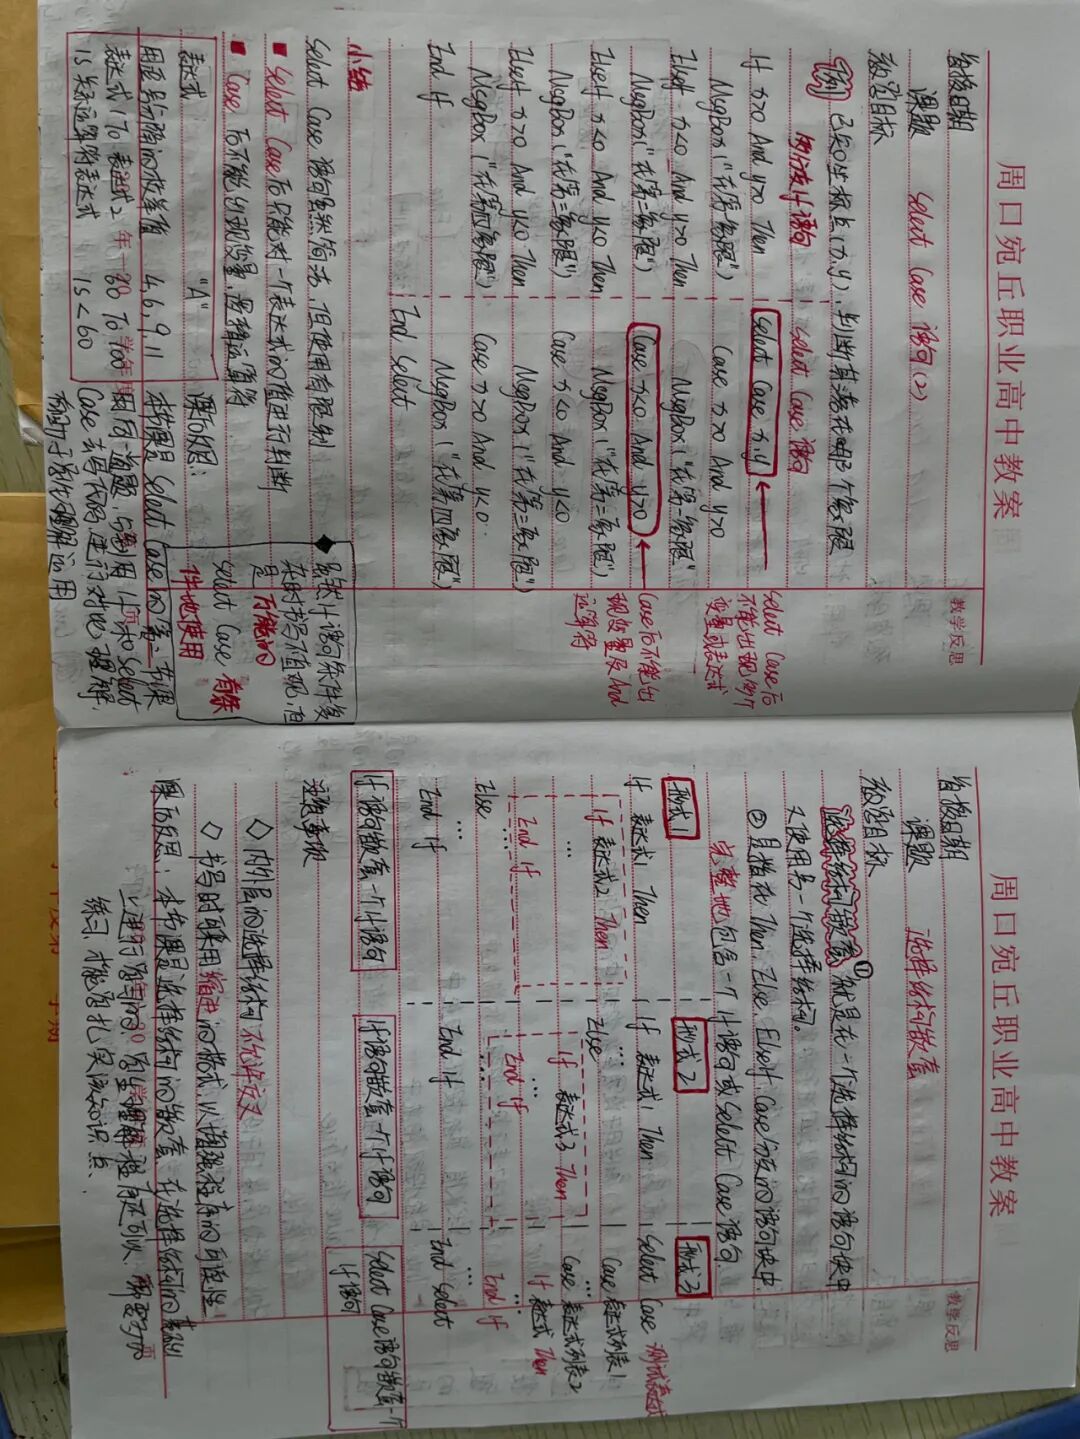 周口宛丘职业高中教案
首授日期
教学反思
课题 Select Case 语句(2)
教学目标
例 已知坐标点(x,y),判断其落在哪个象限
多分支If语句 Select Case 语句
If x>0 And y>0 Then Select Case x,y
MsgBox("在第一象限") Case x>0 And y>0
ElseIf x<0 And y>0 Then MsgBox("在第一象限"
MsgBox("在第二象限") Case x<0 And y>0
ElseIf x<0 And y<0 Then MsgBox("在第二象限")
MsgBox("在第三象限") Case x<0 And y<0
ElseIf x>0 And y<0 Then MsgBox("在第三象限")
MsgBox("在第四象限") Case x>0 And y<0
End If MsgBox("在第四象限")
End Select
Select Case 后
不能出现多个
变量或表达式
Case 后不能出
现变量及And
运算符
小结
Select Case 语句虽然简洁,但使用有限制
■ Select Case 后只能对一个表达式的值进行判断
■ Case 后不能出现变量,及运算符
◆ 虽然If语句条件复
杂时书写不直观,但
是万能的
Select Case 有条
件地使用
表达式 "A"
用逗号分隔的枚举值 4,6,9,11
表达式1 To 表达式2 60 To 100
Is 关系运算符表达式 Is<60
课后反思:
本节课是 Select Case 的第二节课
用同一道题,分别用If和Select
Case 去写代码进行对比理解
有助于学生理解运用
周口宛丘职业高中教案
首授日期
教学反思
课题 选择结构嵌套
教学目标
选择结构嵌套 ①就是在一个选择结构的语句块中
又使用另一个选择结构。
②是指在 Then、Else、ElseIf、Case分支的语句块中
完整地包含一个 If 语句或 Select Case 语句.
形式1 形式2 形式3
If 表达式1 Then If 表达式1 Then Select Case 测试表达式
If 表达式2 Then ... Case 表达式列表1
... Else Case 表达式列表2
End If If 表达式3 Then If 表达式 Then
... ... ...
Else End If End If
... ... ...
End If End If End Select
If语句嵌套一个If语句 If语句嵌套一个If语句 Select Case语句嵌套一个
If语句
注意事项
◇ 内外层的选择结构不允许交叉
◇ 书写时采用缩进的格式,以增强程序的可读性
课后反思:本节课是选择结构的嵌套,在选择结构的基础
上进行
练习,才能更扎实该知识点.